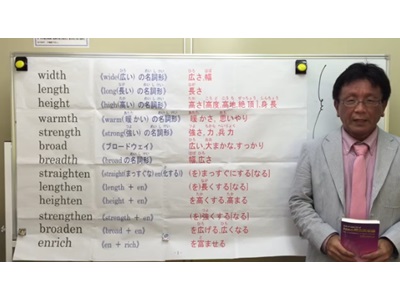 width (wide(広い)の名詞形) 広さ,幅
length (long(長い)の名詞形) 長さ
height (high(高い)の名詞形) 高さ[高度,高地,絶頂],身長
warmth (warm(暖かい)の名詞形) 暖かさ,思いやり
strength (strong(強い)の名詞形) 強さ,力,兵力
broad (ブロードウェイ) 広い,大まかな,すっかり
breadth (broadの名詞形) 幅,広さ
straighten (straight(まっすぐな)+en(化する)) (を)まっすぐにする[なる]
lengthen (length + en) (を)長くする[なる]
heighten (height + en) を高くする,高まる
strengthen (strength + en) (を)強くする[なる]
broaden (broad + en) を広げる,広くなる
enrich (en + rich) を富ませる